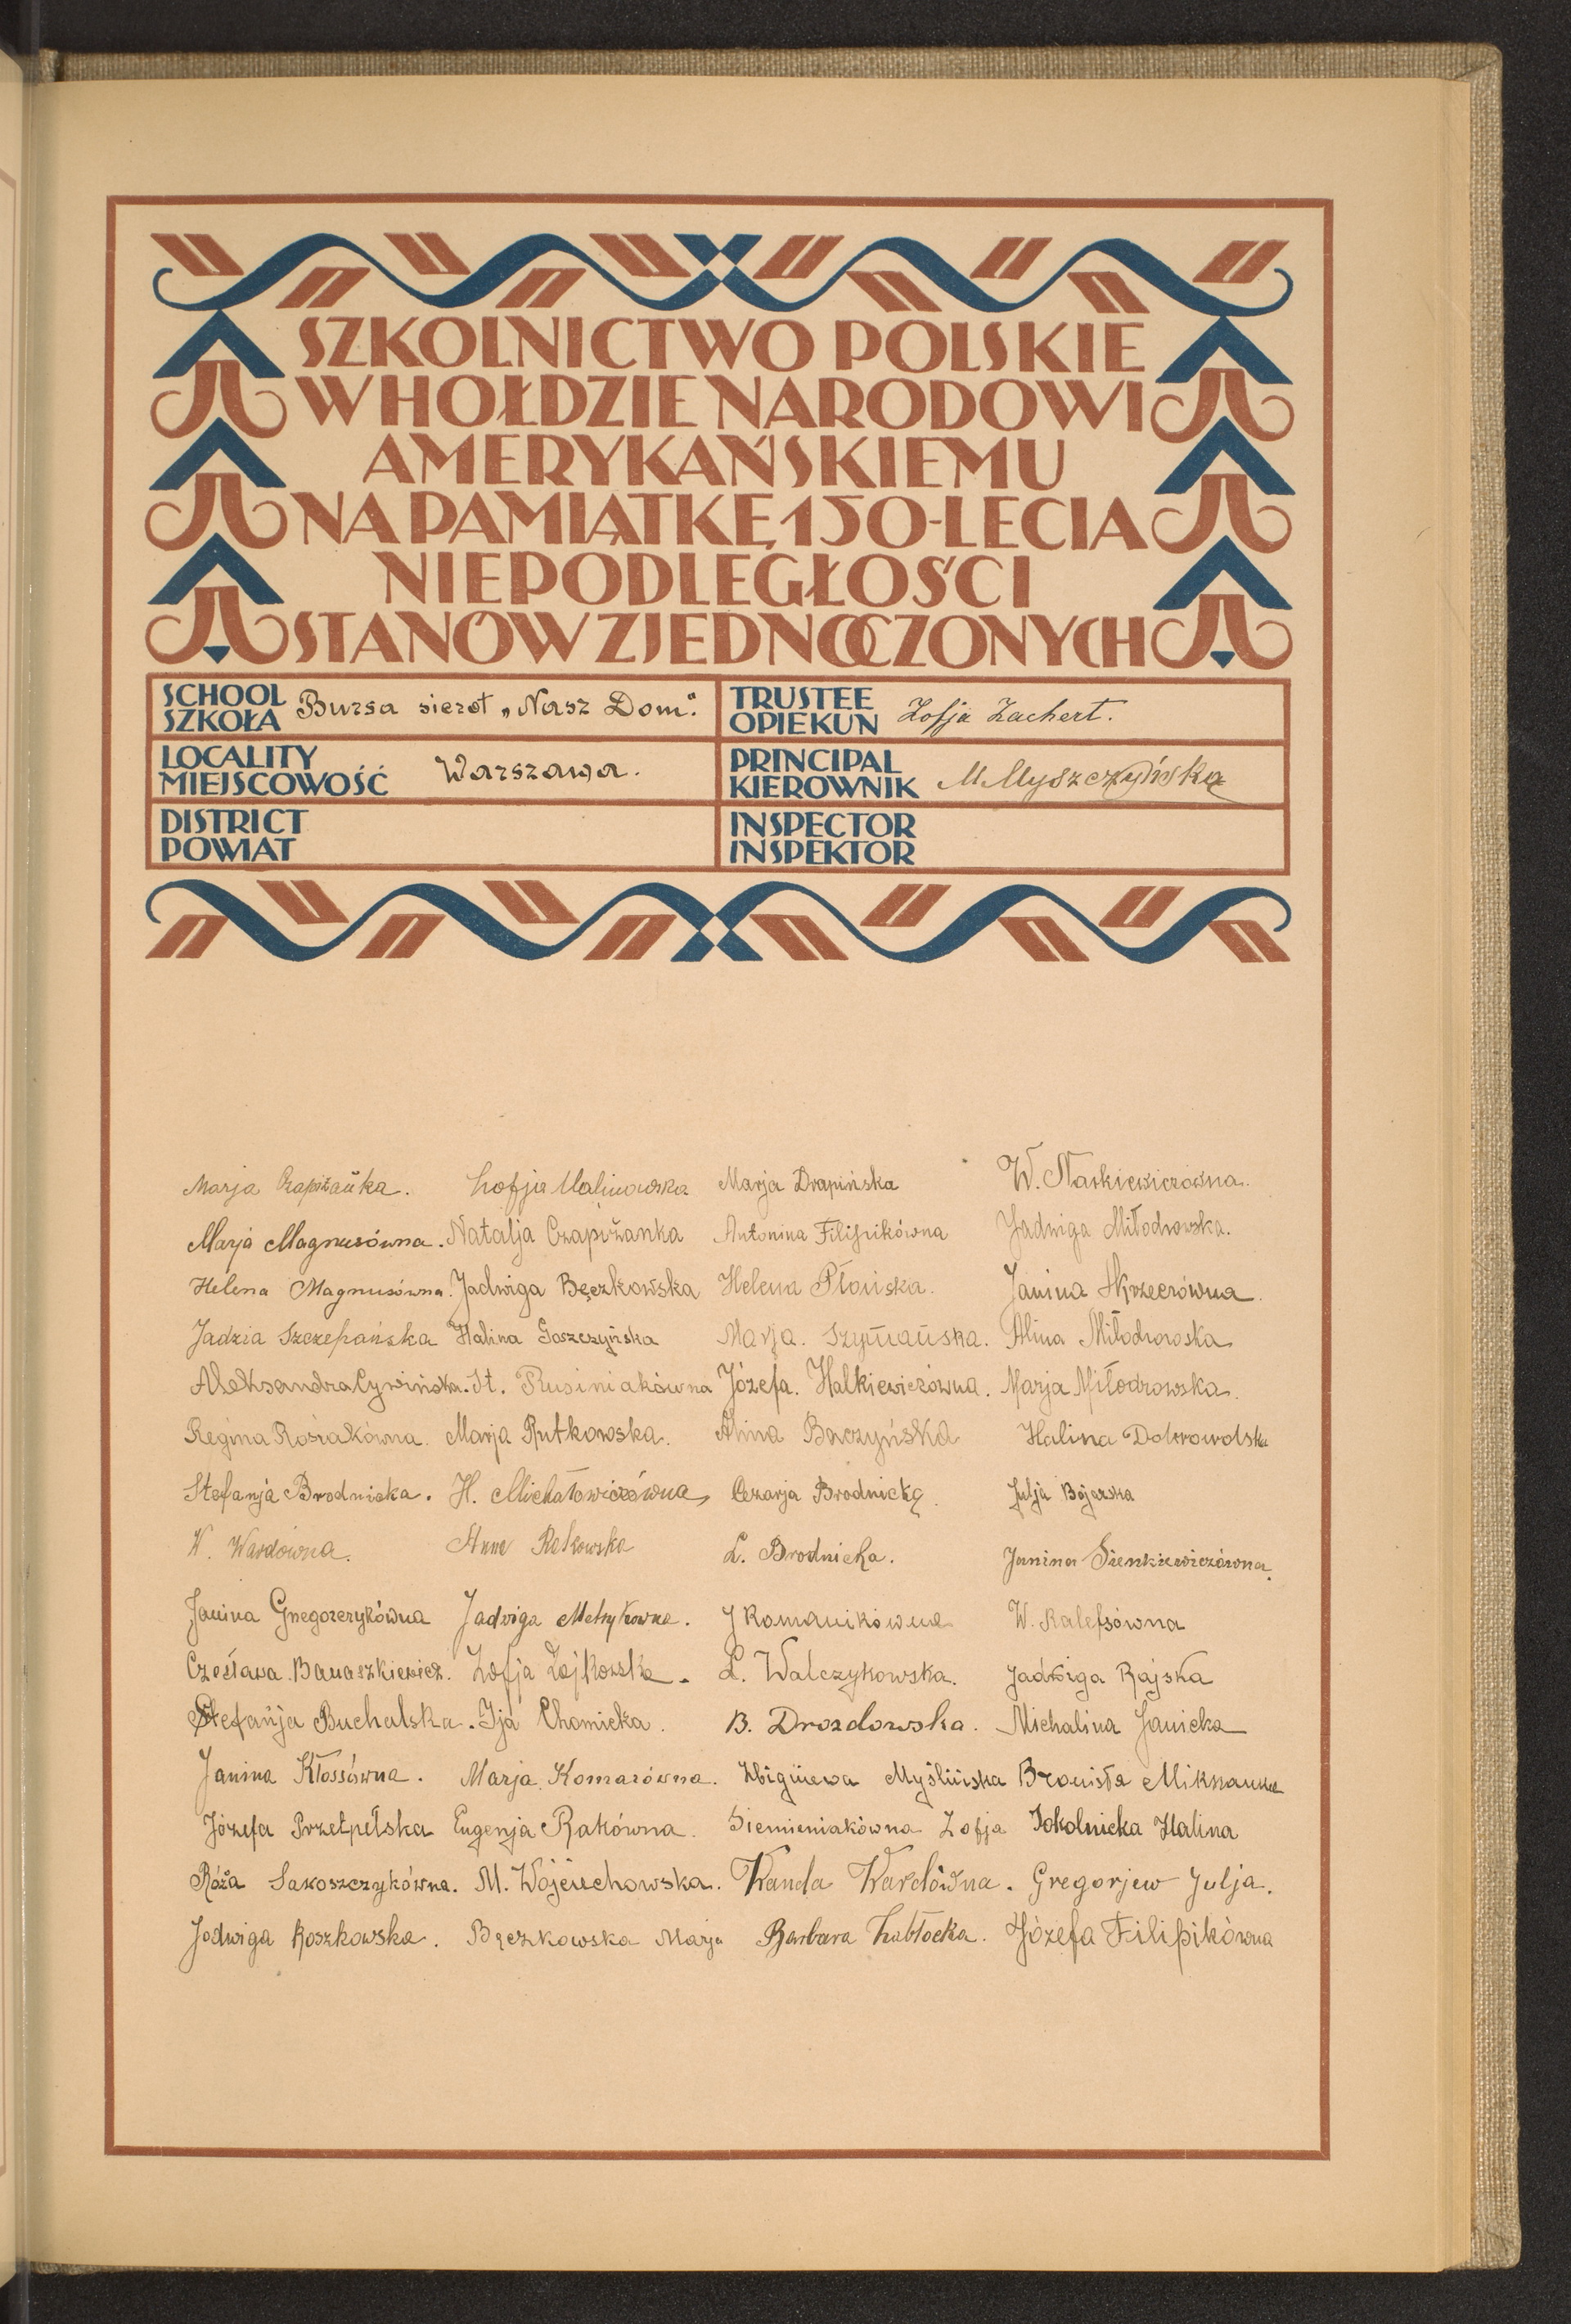 SZKOLNICTWO POLSKIE
W HOŁDZIE NARODOWI
AMERYKAŃSKIEMU
NA PAMIĄTKĘ 150-LECIA
NIEPODLEGŁOŚCI
STANÓW ZJEDNOCZONYCH
SCHOOL
SZKOŁA Bursa sierot „Nasz Dom".
TRUSTEE
OPIEKUN Zofja Zachert.
LOCALITY
MIEJSCOWOŚĆ Warszawa.
PRINCIPAL
KIEROWNIK M Myszczyńska
DISTRICT
POWIAT
INSPECTOR
INSPEKTOR
Marja Czapiżanka. Zofja Malinowska Marja Drapińska W. Narkiewiczówna.
Marja Magnusówna. Natalja Czapiżanka Antonina Filipikówna Jadwiga Miłodrowska.
Helena Magnusówna. Jadwiga Bęczkowska Helena Płońska. Janina Skrzecrówna.
Jadzia Szczepańska Halina Goszczyńska Marja. Szymańska. Alina Miłodrowska
Aleksandra Cywińska. St. Rusiniakówna Józefa. Halkiewiczówna. Marja Miłodrowska.
Regina Rosiakówna. Marja Rutkowska. Alina Baczyńska Halina Dobrowolska
Stefanja Brodnicka. H. Michałowiczówna, Cezarja Brodnicka. Julja Bojarska
W. Wardówna. Anna Rakowska L. Brodnicka. Janina Sienkiewiczówna.
Janina Gregorczykówna Jadwiga Metrykówna. J Romanikówna W. Ralefsówna
Czesława Banaszkiewicz. Zofja Zajkowska. L. Walczykowska. Jadwiga Rajska
Stefanja Buchalska. Ija Chomicka. B. Drozdowska. Michalina Janicka
Janina Kłossówna. Marja Komarówna. Zbigniewa Myślińska Bronisła
Józefa Przetpełska Eugenja Rakówna. Siemieniakówna Zofja Sokolnicka Halina
Róża Sakoszczykówna. M. Wojciechowska. Wanda Wardówna. Gregorjew Julja.
Jadwiga Roszkowska. Bęczkowska Marja Barbara Zabłocka. Józefa Filipikówna